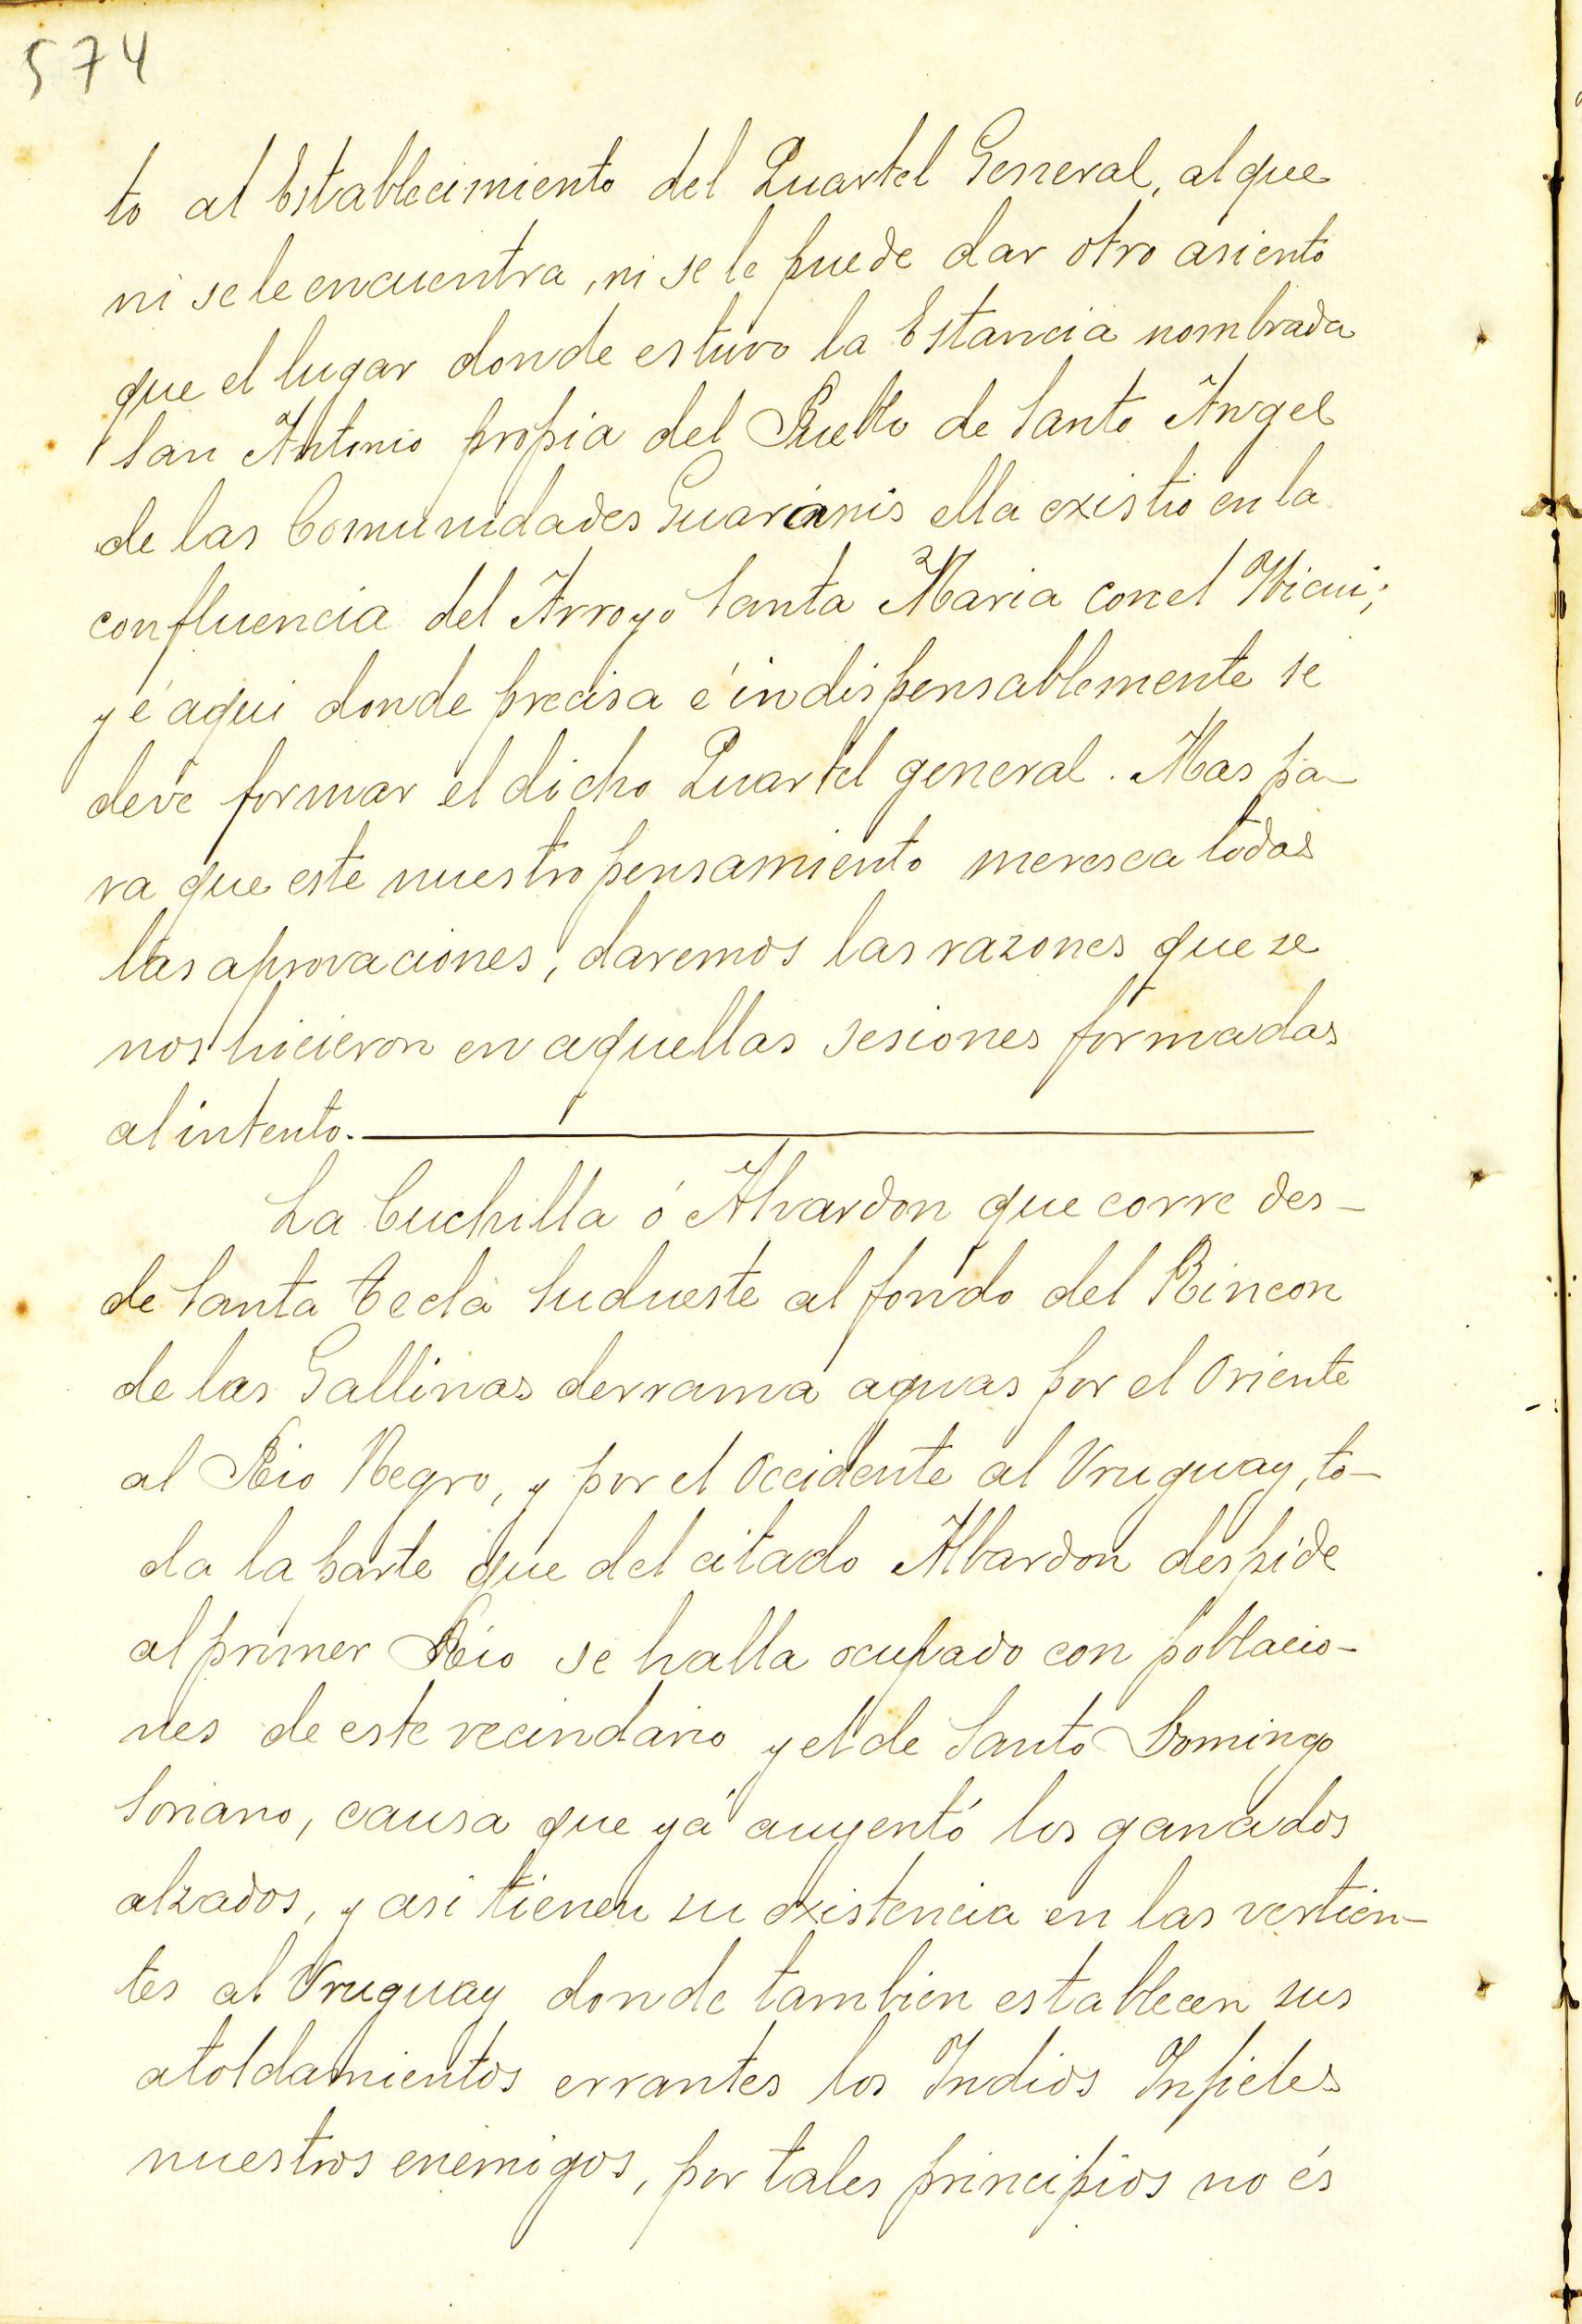 574
to al Establecimiento del Quartel General, al que
ni se le encuentra, ni se le puede dar otro asiento
que el lugar donde estuvo la Estancia nombrada
San Antonio propia del Pueblo de Santo Angel
de las Comunidades Guaranis ella existio en la
confluencia del Arroyo Santa Maria con el Ybicui;
y é aqui donde precisa é indispensablemente se
deve formar el dicho Quartel general. Mas pa-
ra que este nuestro pensamiento meresca todas
las aprovaciones, daremos las razones que se
nos hicieron en aquellas sesiones formadas
al intento.
La Cuchilla ó Alvardon que corre des-
de Santa Tecla Sudueste al fondo del Rincon
de las Gallinas derrama aguas por el Oriente
al Rio Negro, y por el Occidente al Uruguay, to-
da la parte que del citado Albardon despide
al primer Rio se halla ocupado con poblacio-
nes de este vecindario y el de Santo Domingo
Soriano, causa que yá auyentó los ganados
alzados, y asi tienen su existencia en las vertien-
tes al Uruguay donde tambien establecen sus
atoldamientos errantes los Indios Infieles
nuestros enemigos, por tales principios no és